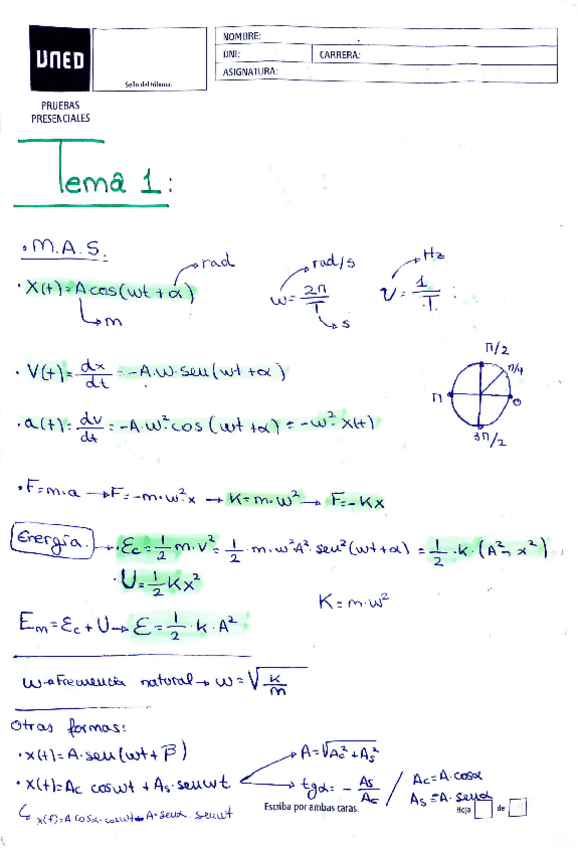 UNED
Sello del tribunal.
PRUEBAS
PRESENCIALES
NOMBRE:
DNI:
CARRERA:
ASIGNATURA:
Tema 1:
• M.A.S.
• X(t)=A cos(wt+α) → rad
→ m
w = 2π/T → rad/s
→ s
ν = 1/T → Hz
• V(t)= dx/dt = -A·w·seu(wt+α)
• a(t)= dv/dt = -A·w²·cos(wt+α) = -w²·x(t)
π/2
π/4
π
0
3π/2
• F=m·a → F=-m·w²·x → K=m·w² → F=-Kx
Energía → • Ec = 1/2 m·v² = 1/2·m·w²A²·seu²(wt+α) = 1/2·k·(A²-x²)
• U = 1/2 Kx²
K=m·w²
Em = Ec + U → E = 1/2·k·A²
w → Frecuencia natural → w = √(K/m)
Otras formas:
• x(t)=A·seu(wt+β)
• x(t)=Ac coswt + As·seuwt → A=√(Ac²+As²)
→ tgα = - As/Ac / Ac=A·cosα
As=A·seuα
↳ x(t)=A cosα·coswt - A·seuα·seuwt
Escriba por ambas caras.
Hoja de